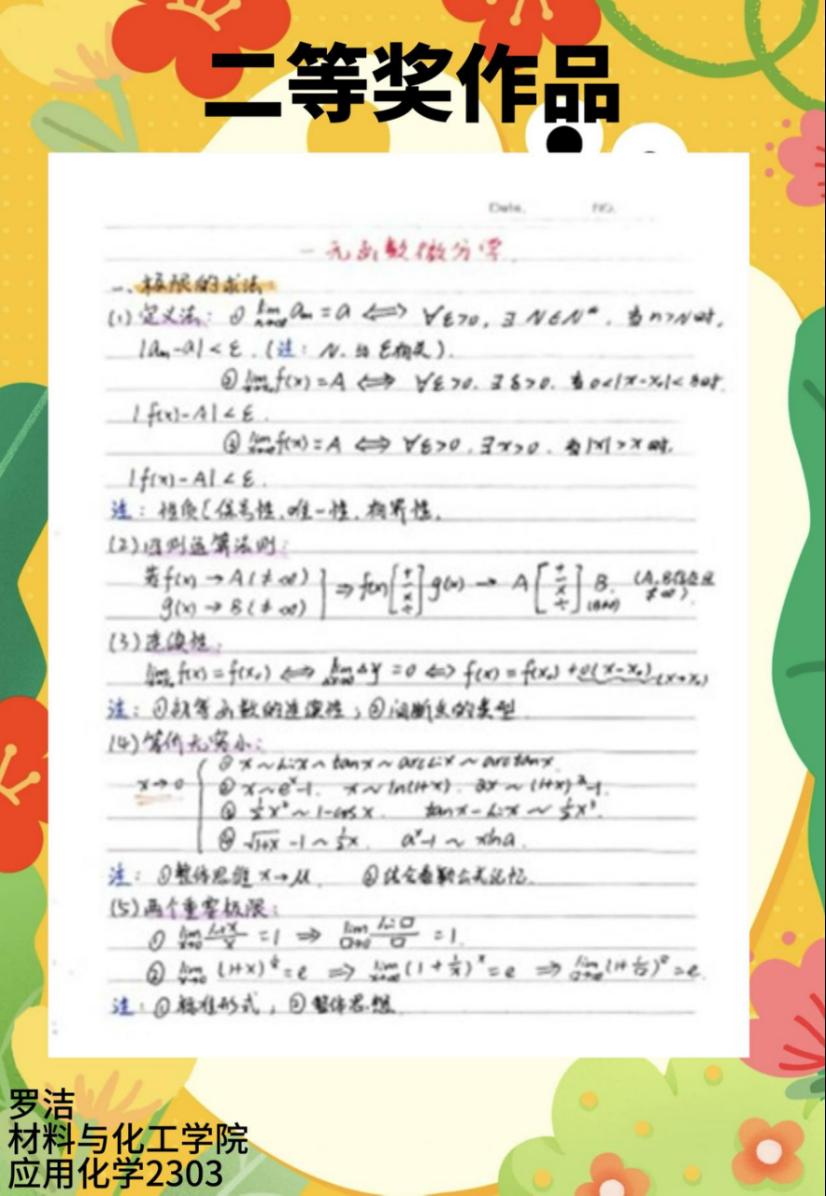 二等奖作品
Date. NO.
一元函数微分学
一、极限的求法:
(1)定义法: ① lim aₙ = a ⟺ ∀ε>0, ∃ N∈N*, 当n>N时,
|aₙ-a|<ε. (注: N.与ε相关).
② lim f(x)=A ⟺ ∀ε>0. ∃δ>0. 当0<|x-x₀|<δ时.
|f(x)-A|<ε.
③ lim f(x)=A ⟺ ∀ε>0, ∃x>0. 当|x|>x时.
|f(x)-A|<ε.
注: 性质[保号性、唯一性、有界性.
(2)四则运算法则:
若f(x)→A(≠∞)
g(x)→B(≠∞) ] ⇒ f(x)[+ - × ÷]g(x) → A[+ - × ÷]B. (B≠0) (A,B存在且≠∞).
(3)连续性:
lim f(x)=f(x₀) ⟺ lim Δy=0 ⟺ f(x)=f(x₀)+o(x-x₀) (x→x₀)
注: ①初等函数的连续性; ②间断点的类型
(4)等价无穷小:
x→0 { ① x~sinx~tanx~arcsinx~arctanx.
② x~eˣ-1. x~ln(1+x). ax~(1+x)ᵃ-1.
③ ½x²~1-cosx. tanx-sinx~½x³.
④ √1+x -1~½x. aˣ-1~xlna.
注: ①整体思维 x→μ. ②结合泰勒公式记忆.
(5)两个重要极限:
① lim(x→0) sinx/x =1 ⇒ lim(□→0) sin□/□ =1.
② lim(x→0) (1+x)^(1/x)=e ⇒ lim(x→∞) (1+1/x)ˣ=e ⇒ lim(□→∞) (1+1/□)^□=e.
注: ①标准形式; ②整体思想.
罗洁
材料与化工学院
应用化学2303